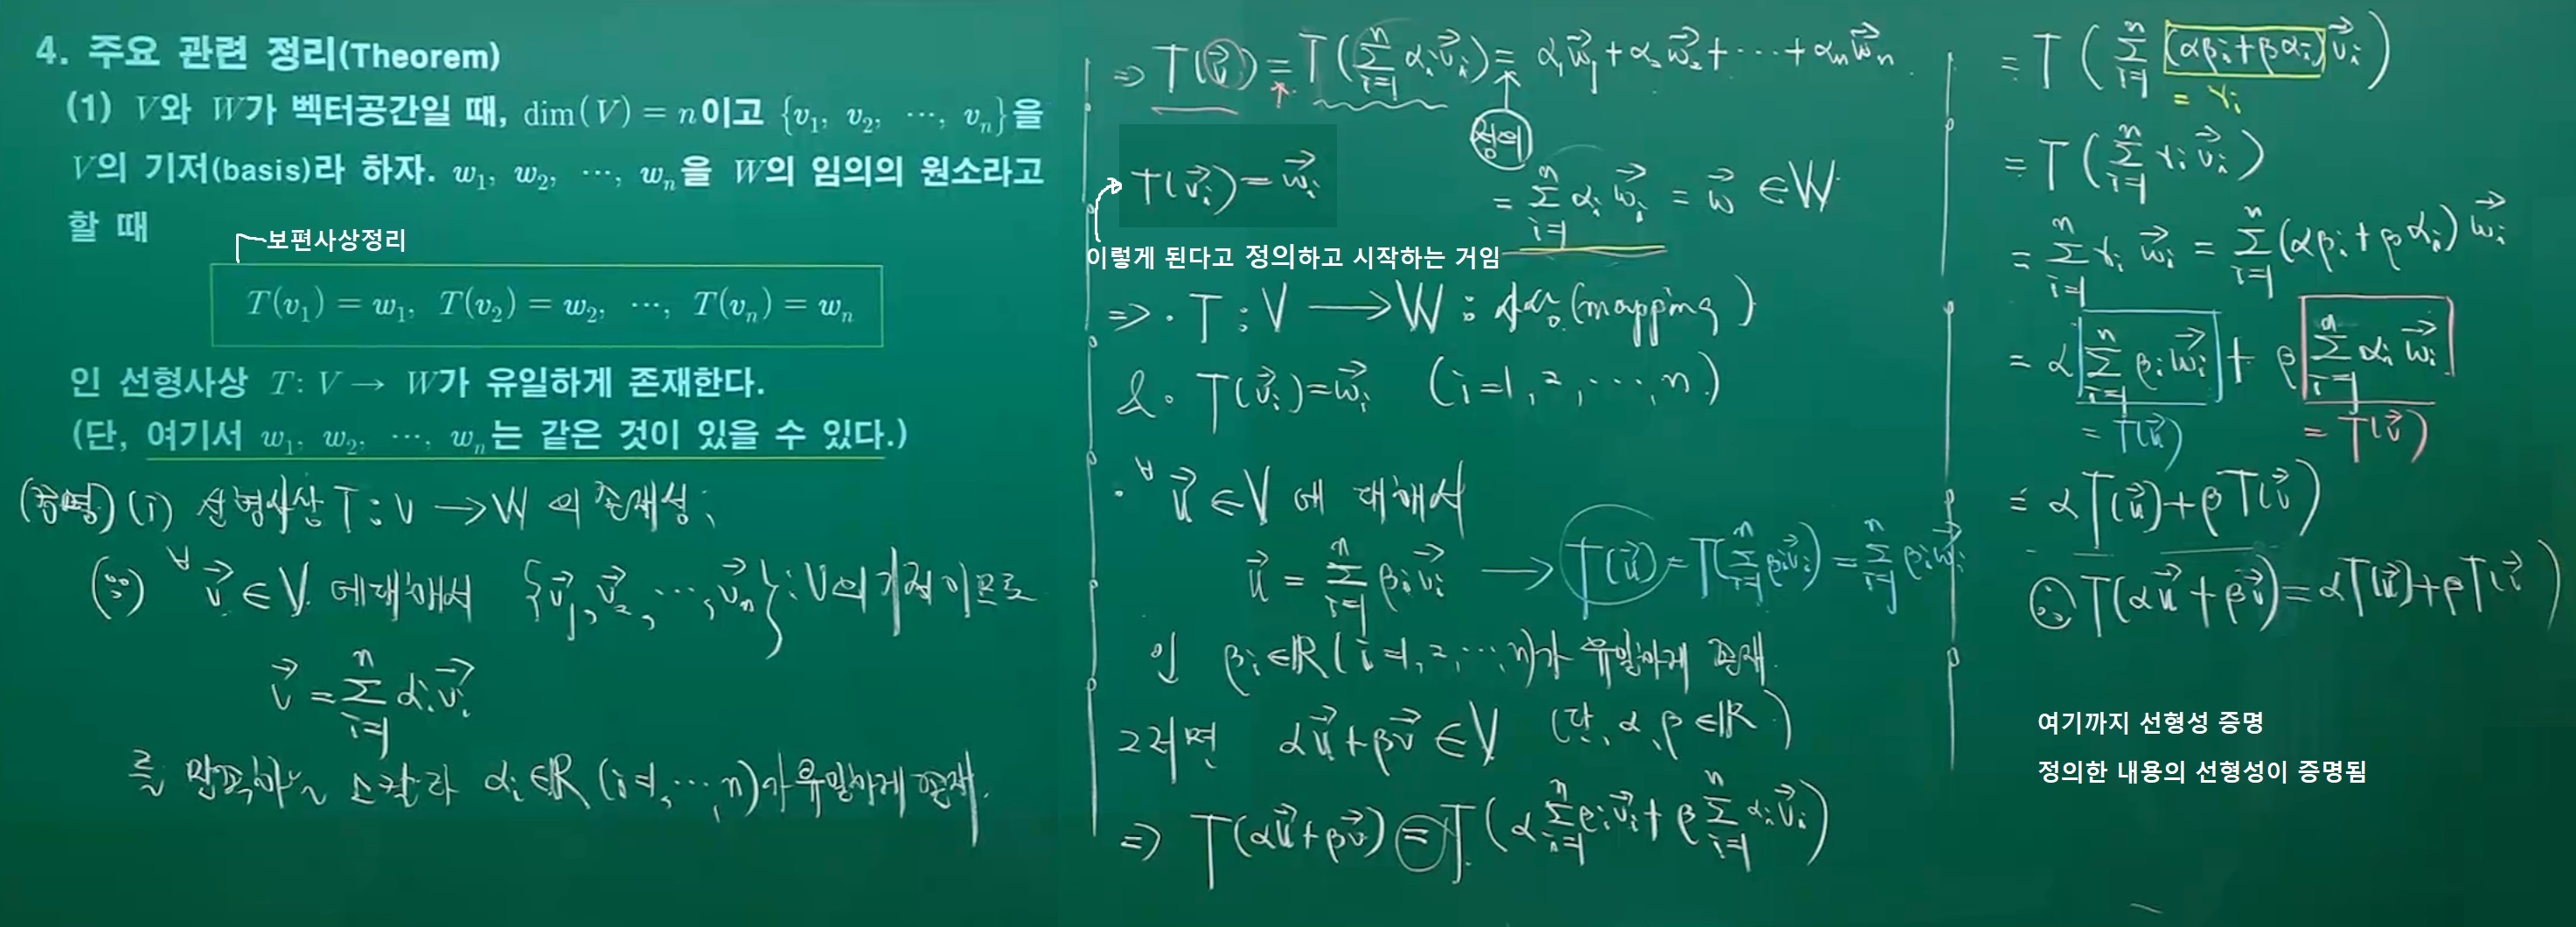 4. 주요 관련 정리(Theorem)
(1) V와 W가 벡터공간일 때, dim(V) = n이고 {v₁, v₂, ⋯, vₙ}을
V의 기저(basis)라 하자. w₁, w₂, ⋯, wₙ을 W의 임의의 원소라고
할 때
보편사상정리
T(v₁) = w₁, T(v₂) = w₂, ⋯, T(vₙ) = wₙ
인 선형사상 T: V → W가 유일하게 존재한다.
(단, 여기서 w₁, w₂, ⋯, wₙ는 같은 것이 있을 수 있다.)
(증명) (i) 선형사상 T : V → W 의 존재성;
(∵) ∀v⃗ ∈ V 에 대해서 {v⃗₁, v⃗₂, ⋯, v⃗ₙ} : V의 기저이므로
v⃗ = Σⁿᵢ₌₁ αᵢv⃗ᵢ
를 만족하는 스칼라 αᵢ ∈ ℝ (i=1, ⋯, n)가 유일하게 존재.
⇒ T(v⃗) = T(Σⁿᵢ₌₁ αᵢv⃗ᵢ) = α₁w⃗₁ + α₂w⃗₂ + ⋯ + αₙw⃗ₙ
정의
T(v⃗ᵢ) = w⃗ᵢ
= Σⁿᵢ₌₁ αᵢw⃗ᵢ = w⃗ ∈ W
이렇게 된다고 정의하고 시작하는 거임
⇒ · T : V → W : 사상(mapping)
& · T(v⃗ᵢ) = w⃗ᵢ (i=1, 2, ⋯, n)
· ∀u⃗ ∈ V 에 대해서
u⃗ = Σⁿᵢ₌₁ βᵢv⃗ᵢ → T(u⃗) = T(Σⁿᵢ₌₁ βᵢv⃗ᵢ) = Σⁿᵢ₌₁ βᵢw⃗ᵢ
인 βᵢ ∈ ℝ (i=1, 2, ⋯, n)가 유일하게 존재.
그러면 αu⃗ + βv⃗ ∈ V (단, α, β ∈ ℝ)
⇒ T(αu⃗ + βv⃗) = T(α Σⁿᵢ₌₁ βᵢv⃗ᵢ + β Σⁿᵢ₌₁ αᵢv⃗ᵢ)
= T(Σⁿᵢ₌₁ (αβᵢ + βαᵢ)v⃗ᵢ)
= γᵢ
= T(Σⁿᵢ₌₁ γᵢv⃗ᵢ)
= Σⁿᵢ₌₁ γᵢw⃗ᵢ = Σⁿᵢ₌₁ (αβᵢ + βαᵢ)w⃗ᵢ
= α Σⁿᵢ₌₁ βᵢw⃗ᵢ + β Σⁿᵢ₌₁ αᵢw⃗ᵢ
= T(u⃗) = T(v⃗)
= αT(u⃗) + βT(v⃗)
∴ T(αu⃗ + βv⃗) = αT(u⃗) + βT(v⃗)
여기까지 선형성 증명
정의한 내용의 선형성이 증명됨